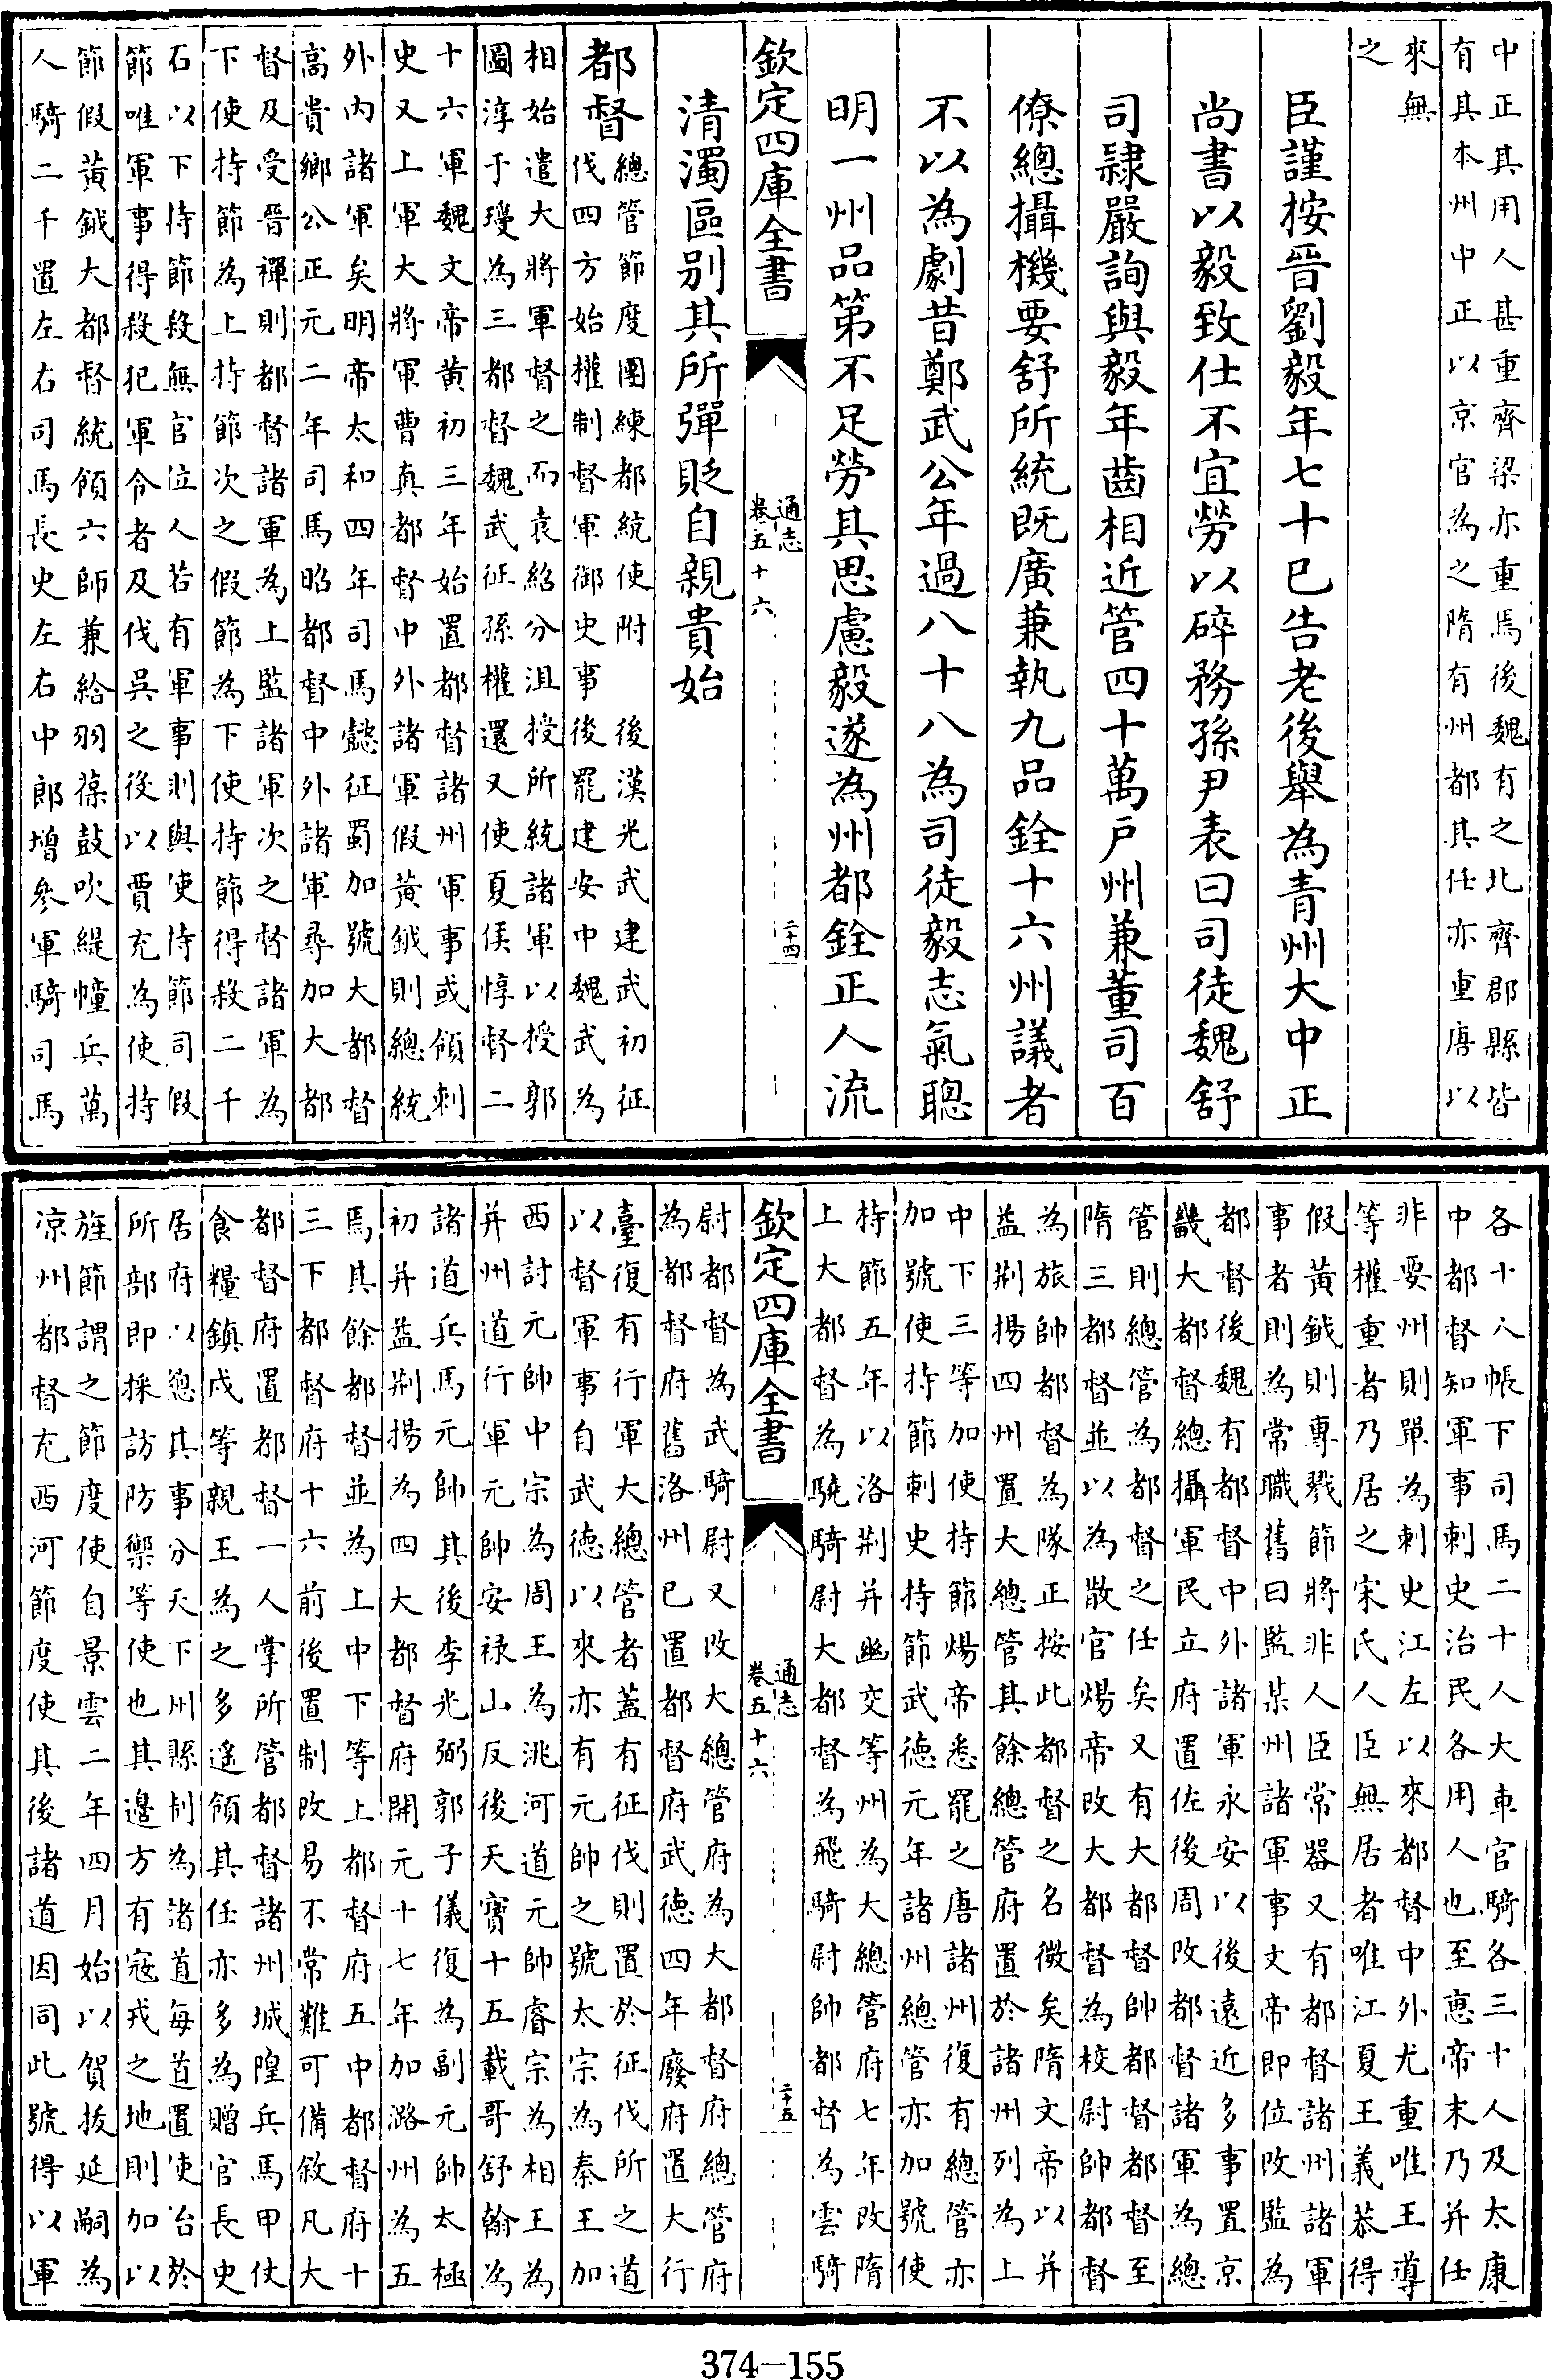 中正其用人甚重齊梁亦重焉後魏有之北齊郡縣皆
有其本州中正以京官為之隋有州都其任亦重唐以
來無
之
臣謹按晉劉毅年七十已告老後舉為青州大中正
尚書以毅致仕不宜勞以碎務孫尹表曰司徒魏舒
司隸嚴詢與毅年齒相近管四十萬戶州兼董司百
僚總攝機要舒所統既廣兼執九品銓十六州議者
不以為劇昔鄭武公年過八十八為司徒毅志氣聰
明一州品第不足勞其思慮毅遂為州都銓正人流
欽定四庫全書
通志
卷五十六
二十四
清濁區别其所彈貶自親貴始
都督
總管節度團練都統使附 後漢光武建武初征
伐四方始權制督軍御史事 後罷建安中魏武為
相始遣大將軍督之而袁紹分沮授所統諸軍以授郭
圖淳于瓊為三都督魏武征孫權還又使夏侯惇督二
十六軍魏文帝黃初三年始置都督諸州軍事或領刺
史又上軍大將軍曹真都督中外諸軍假黃鉞則總統
外内諸軍矣明帝太和四年司馬懿征蜀加號大都督
高貴鄉公正元二年司馬昭都督中外諸軍尋加大都
督及受晉禪則都督諸軍為上監諸軍次之督諸軍為
下使持節為上持節次之假節為下使持節得殺二千
石以下持節殺無官位人若有軍事則與使持節同假
節唯軍事得殺犯軍令者及伐吳之後以賈充為使持
節假黃鉞大都督統領六師兼給羽葆鼓吹緹幢兵萬
人騎二千置左右司馬長史左右中郎增參軍騎司馬
各十人帳下司馬二十人大車官騎各三十人及太康
中都督知軍事刺史治民各用人也至惠帝末乃并任
非要州則單為刺史江左以來都督中外尤重唯王導
等權重者乃居之宋氏人臣無居者唯江夏王義恭得
假黃鉞則專戮節將非人臣常器又有都督諸州諸軍
事者則為常職舊曰監某州諸軍事文帝即位改監為
都督後魏有都督中外諸軍永安以後遠近多事置京
畿大都督總攝軍民立府置佐後周改都督諸軍為總
管則總管為都督之任矣又有大都督帥都督都督至
隋三都督並以為散官煬帝改大都督為校尉帥都督
為旅帥都督為隊正按此都督之名微矣隋文帝以并
益荆揚四州置大總管其餘總管府置於諸州列為上
中下三等加使持節煬帝悉罷之唐諸州復有總管亦
加號使持節刺史持節武德元年諸州總管亦加號使
持節五年以洛荆并幽交等州為大總管府七年改隋
上大都督為驍騎尉大都督為飛騎尉帥都督為雲騎
欽定四庫全書
通志
卷五十六
二十五
尉都督為武騎尉又改大總管府為大都督府總管府
為都督府舊洛州已置都督府武德四年廢府置大行
臺復有行軍大總管者蓋有征伐則置於征伐所之道
以督軍事自武德以來亦有元帥之號太宗為秦王加
西討元帥中宗為周王為洮河道元帥睿宗為相王為
并州道行軍元帥安祿山反後天寶十五載哥舒翰為
諸道兵馬元帥其後李光弼郭子儀復為副元帥太極
初并益荆揚為四大都督府開元十七年加潞州為五
焉其餘都督並為上中下等上都督府五中都督府十
三下都督府十六前後置制改易不常難可備敘凡大
都督府置都督一人掌所管都督諸州城隍兵馬甲仗
食糧鎮戍等親王為之多遙領其任亦多為贈官長史
居府以總其事分天下州縣制為諸道每道置使治於
所部即採訪防禦等使也其邊方有寇戎之地則加以
旌節謂之節度使自景雲二年四月始以賀拔延嗣為
涼州都督充西河節度使其後諸道因同此號得以軍
374-155